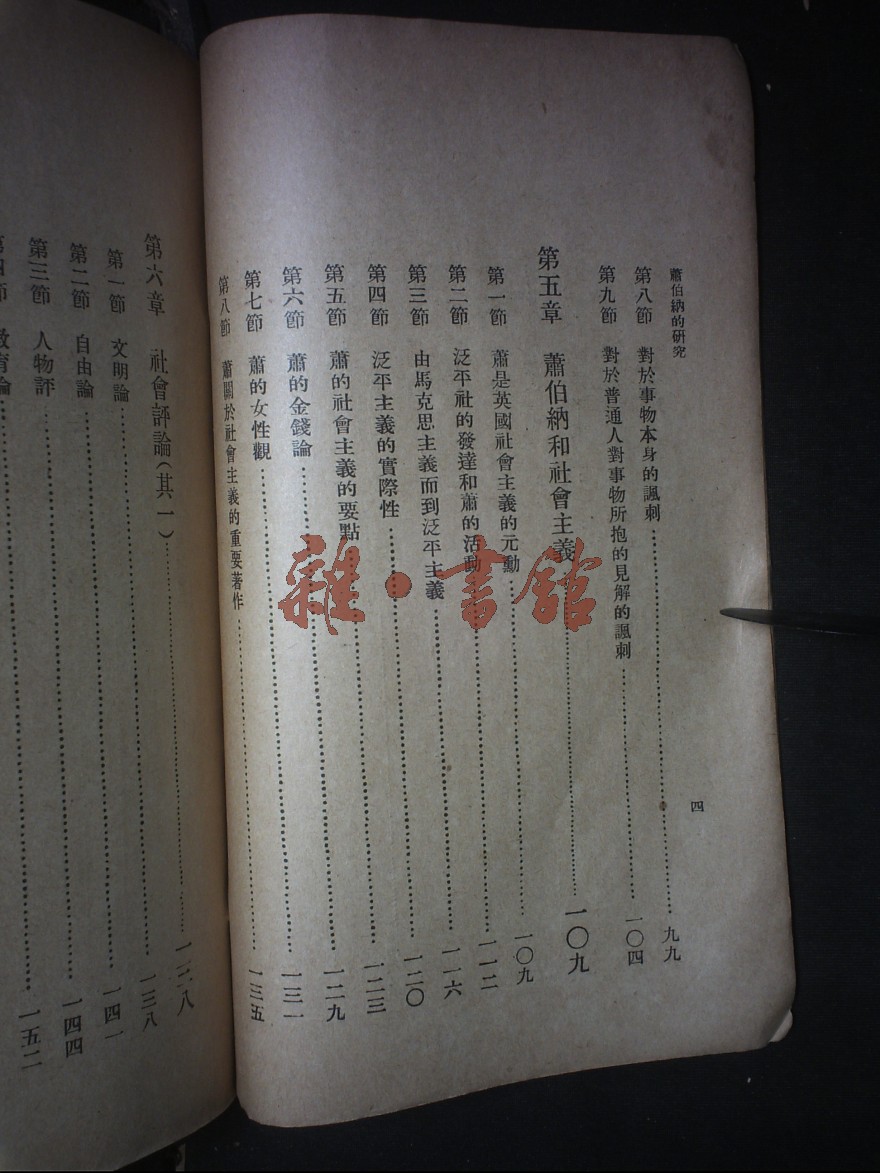 蕭伯納的研究
四
第八節 對於事物本身的諷刺……九九
第九節 對於普通人對事物所抱的見解的諷刺……一〇四
第五章 蕭伯納和社會主義……一〇九
第一節 蕭是英國社會主義的元勳……一〇九
第二節 泛平社的發達和蕭的活動……一一二
第三節 由馬克思主義而到泛平主義……一一六
第四節 泛平主義的實際性……一二〇
第五節 蕭的社會主義的要點……一二三
第六節 蕭的金錢論……一二九
第七節 蕭的女性觀……一三一
第八節 蕭關於社會主義的重要著作……一三五
第六章 社會評論(其一)……一三八
第一節 文明論……一三八
第二節 自由論……一四一
第三節 人物評……一四四
第四節 教育論……一五二
雜·書館